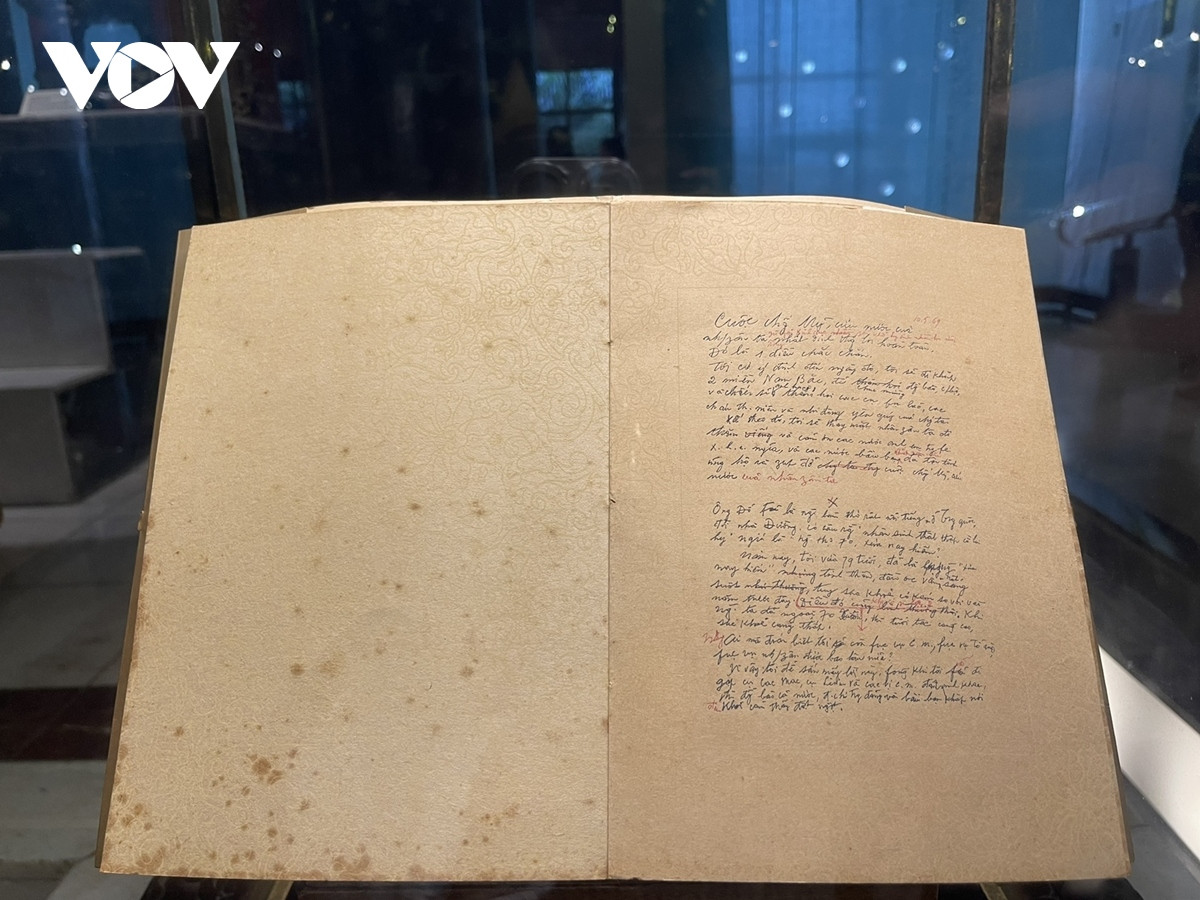 VOV
10.5.69
Cuộc chống Mỹ, cứu nước của
nh/zân ta
nhất định thắng lợi hoàn toàn.
Đó là 1 điều chắc chắn.
Tôi có ý định đến ngày đó, tôi sẽ đi khắp
2 miền Nam Bắc, để chúc mừng đồng bào, chiến
sĩ thăm hỏi các cụ fụ lão, các
cháu th. niên và nhi đồng yêu quý của chúng ta
Kế theo đó, tôi sẽ thay mặt nhân zân ta đi
thăm viếng và cảm ơn các nước anh em
x. h. c. nghĩa, và các nước bầu bạn đã tận tình
ủng hộ và zúp đỡ cuộc chống Mỹ, cứu
nước của nhân zân ta
X
Ông Đỗ Fủ là người làm thơ rất nổi tiếng ở Trung quốc,
đời nhà Đường, có câu rằng "nhân sinh thất thập cổ lai
hy" nghĩa là "người thọ 70, xưa nay hiếm".
Năm nay, tôi vừa 79 tuổi, đã là lớp người "xưa
nay hiếm" nhưng tinh thần, đầu óc vẫn sáng
suốt, tuy sức khoẻ có kém so với vài
năm trước đây. Khi
người ta đã ngoài 70 xuân, thì tuổi tác càng cao,
sức khoẻ càng thấp.
Nhưng ai mà đoán biết tôi còn fục vụ c. m., fục vụ Tổ quốc,
fục vụ nh/zân được bao lâu nữa?
Vì vậy, tôi để sẵn mấy lời này, fòng khi tôi đi
gặp cụ Các Mác, cụ Lênin và các vị c. m. đàn anh khác,
thì đồng bào cả nước, đ. chí trong đảng và bầu bạn khắp nơi
đều khỏi cảm thấy đột ngột.